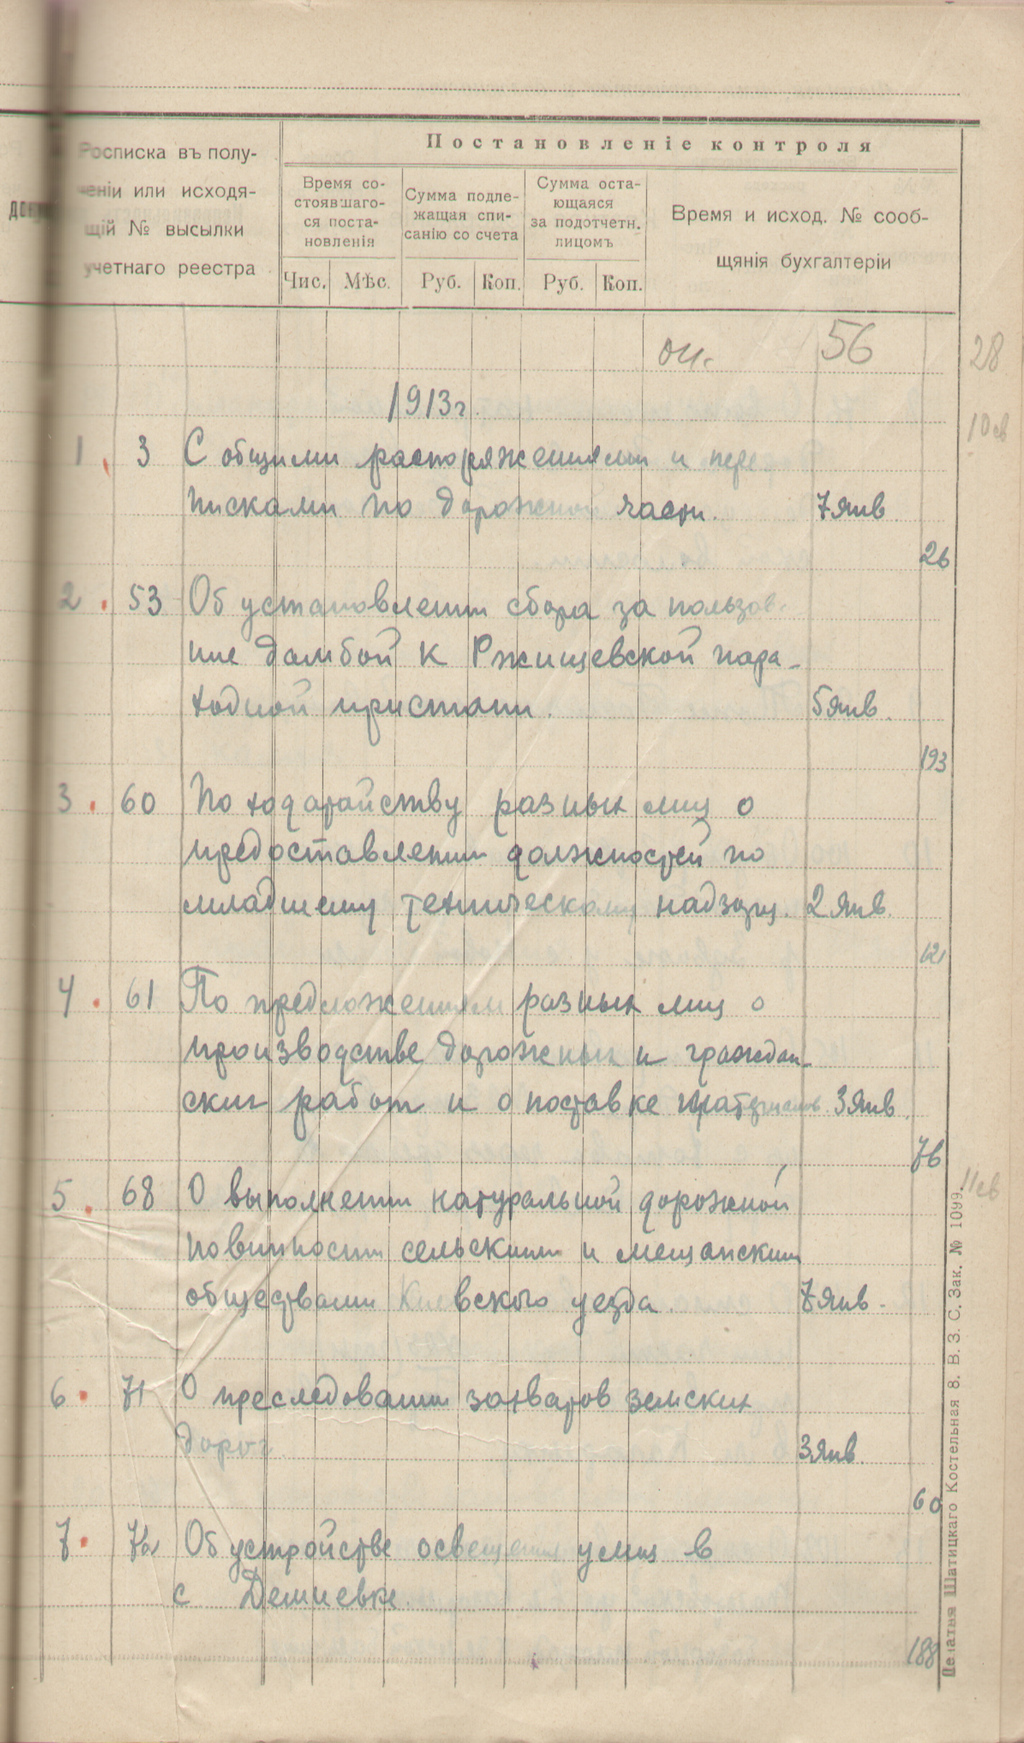 Постановленіе контроля
Росписка въ полу-
ченіи или исходя-
щій № высылки
учетнаго реестра
Время со-
стоявшаго-
ся поста-
новленія
Сумма подле-
жащая спи-
санію со счета
Сумма оста-
ющаяся
за подотчетн.
лицомъ
Время и исход. № сооб-
щянія бухгалтеріи
Чис. Мѣс. Руб. Коп. Руб. Коп.
оп. 56 28
1913г.
1. 3 С общими распоряжениями и пере
писками по дорожной части. 7 янв
26
2. 53 Об установлении сбора за пользов-
ние дамбой к Ржищевской паро-
ходной пристани. 5 янв.
193
3. 60 По ходатайству разных лиц о
предоставлении должностей по
младшему техническому надзору. 2 янв.
121
4. 61 По предложениям разных лиц о
производстве дорожных и граждан-
ских работ и о поставке 3 янв.
76
5. 68 О выполнении натуральной дорожной
повинности сельскими и мещанскими
обществами Киевского уезда. 7 янв.
6. 71 О преследовании захватов земских
дорог 3 янв.
60
7. Об устройстве освещения улиц в
с Демиевке.
188
Печатня Шатицкаго Костельная 8. В. З. С. Зак. № 1099.